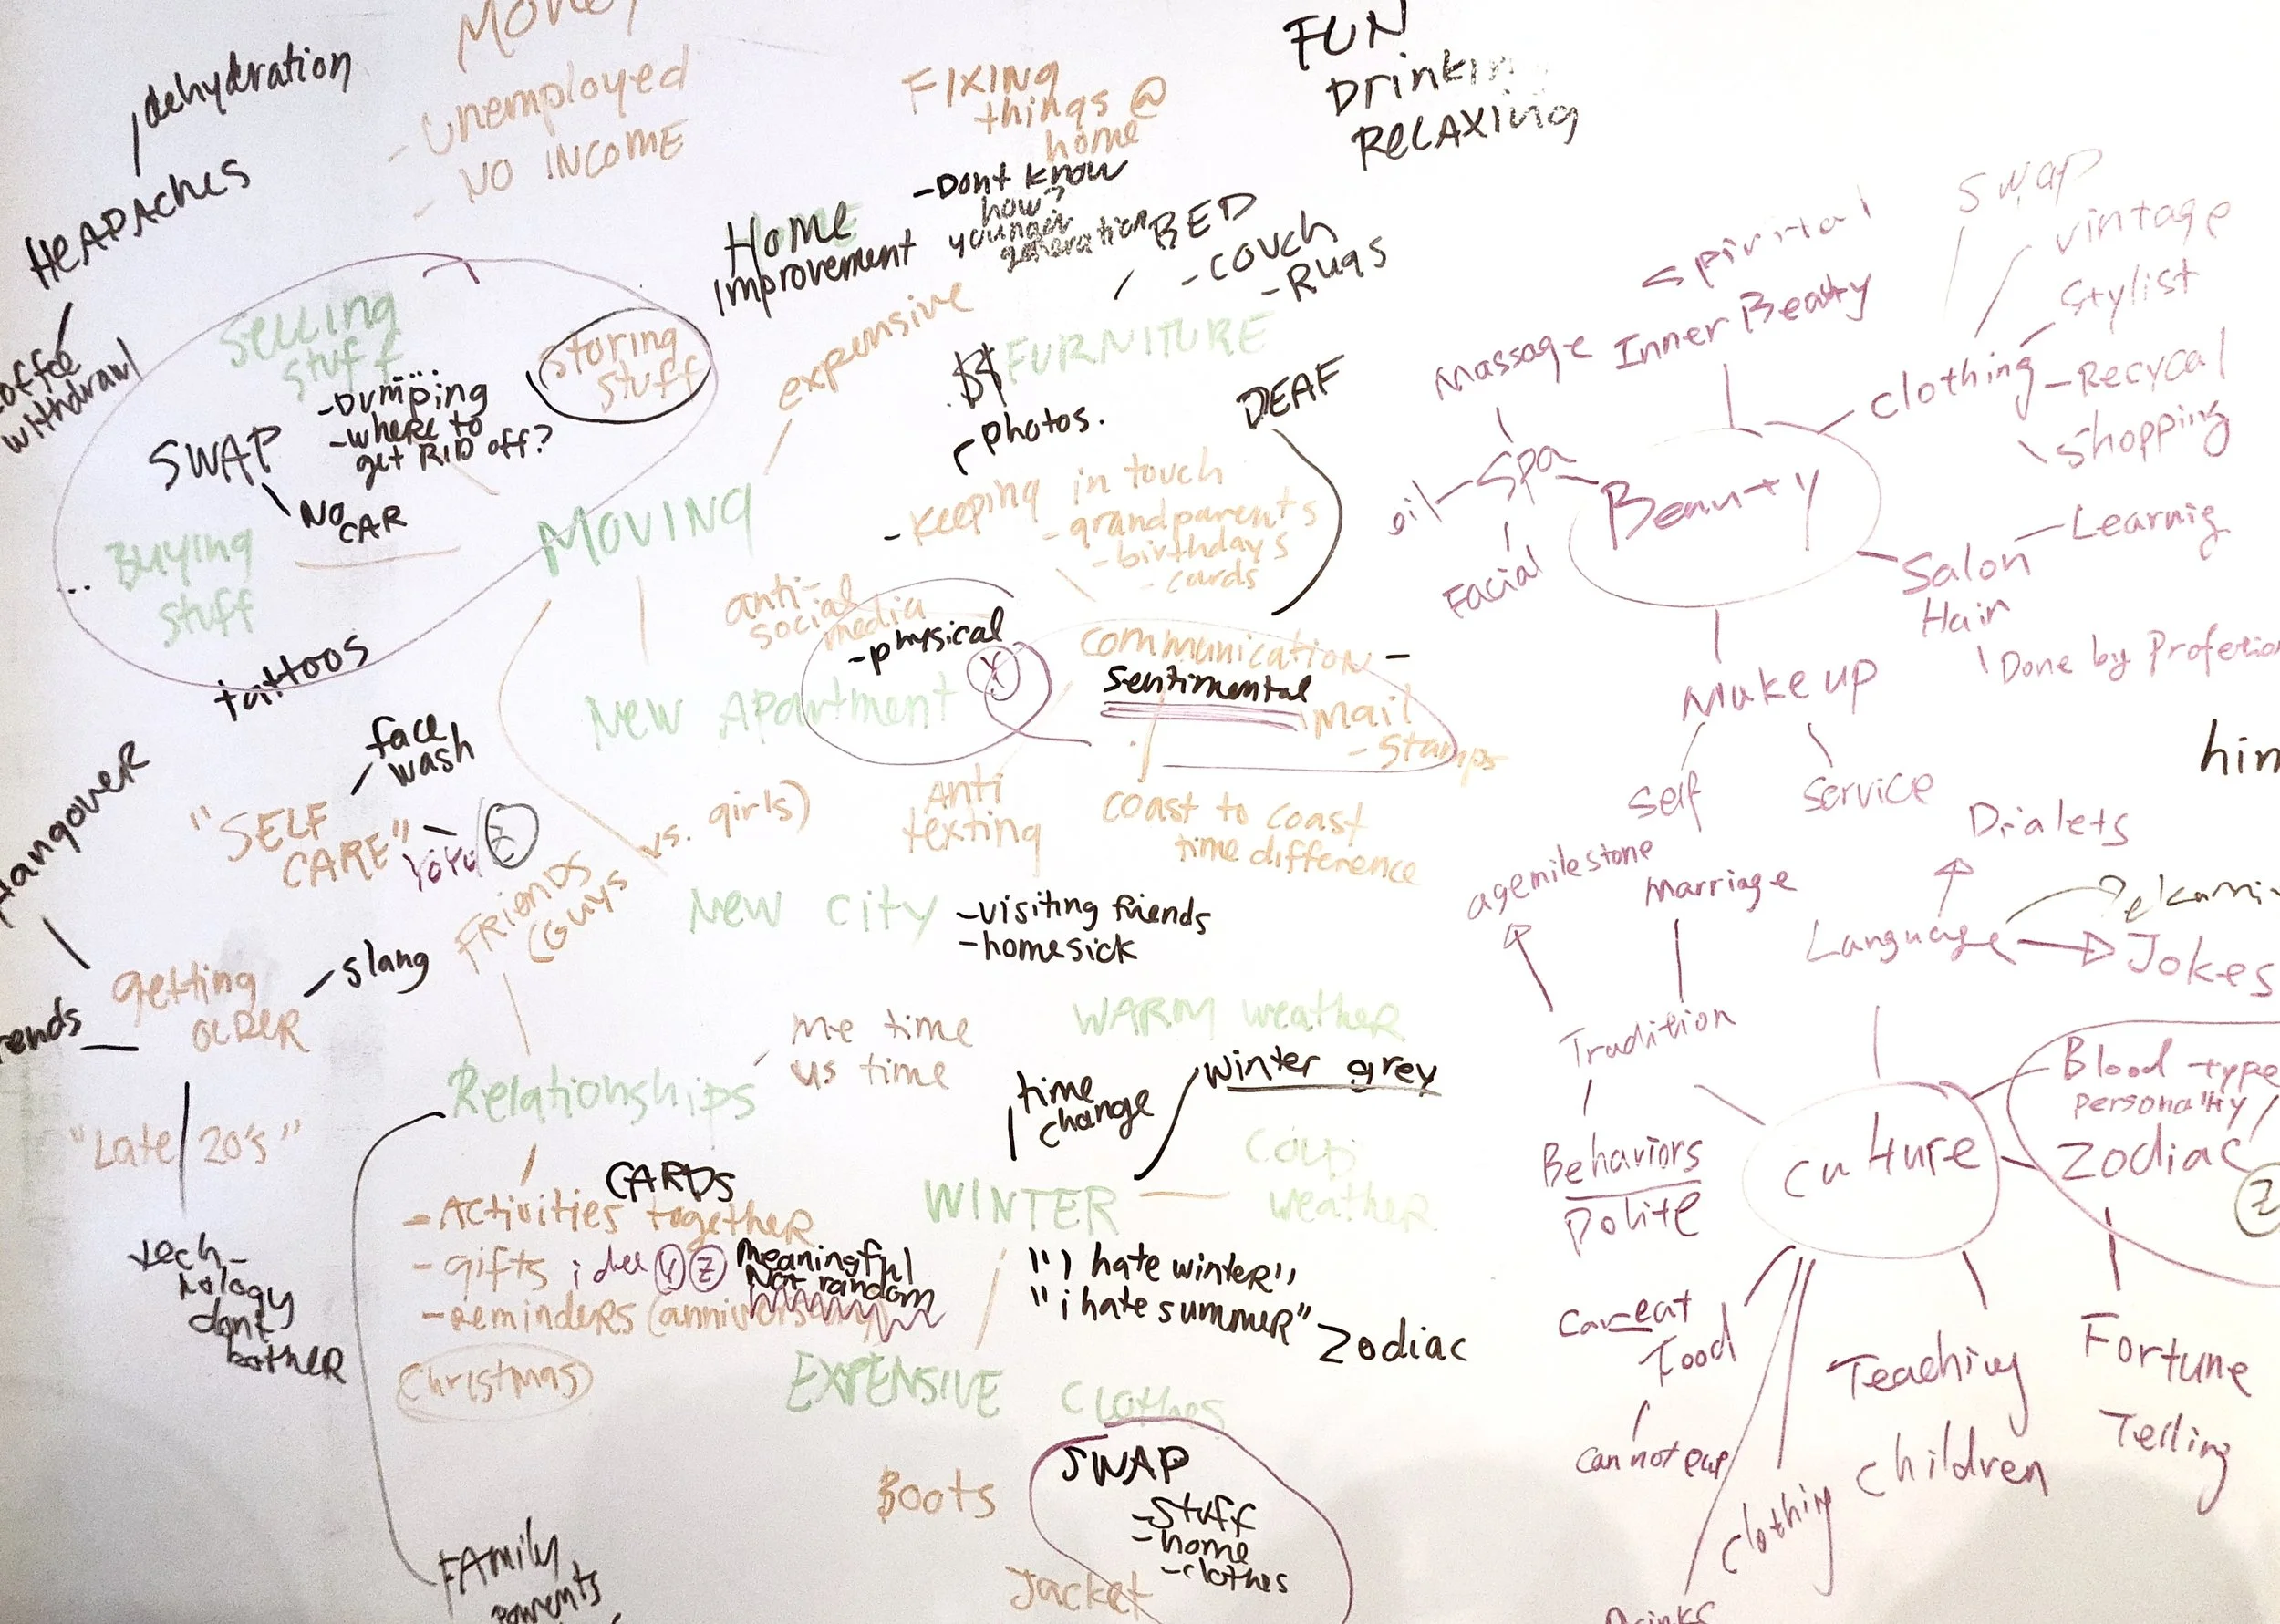 Money
- unemployed
- NO INCOME
dehydration
HEADAches
withdrawl
FIXING
things @
home
-Dont know
how?
younger
generation
Home
Improvement
expensive
FUN
Drinkin
RELAXing
BED
- couch
- Rugs
$$ FURNITURE
selling
stuff
...
-Dumping
-where to
get RID off?
storing
stuff
SWAP
NO
CAR
Buying
stuff
...
MOVING
tattoos
- photos.
- Keeping in touch
- grandparents
- birthdays
- cards
DEAF
anti-
social
media
-physical
Y
communication -
sentimental
mail
- stamps
New Apartment
Anti
texting
coast to coast
time difference
face
wash
"SELF
CARE"
YoYu
Z
hangover
FRiends
(Guys
vs. girls)
New city
-visiting friends
-homesick
getting
OLDER
slang
"Late 20's"
tech-
nology
dont
bother
Relationships
me time
us time
CARDS
- Activities together
- gifts idea Y Z
meaningful
Not random
- reminders (anniversary)
Christmas
FAmily
parents
WARM weather
winter grey
time
change
WINTER
COLD
weather
"I hate winter"
"i hate summer"
Zodiac
EXPENSIVE clothes
SWAP
-stuff
-home
-clothes
Boots
Jacket
Beauty
Spirital
Inner Beauty
Massage
Spa
oil
Facial
clothing
swap
vintage
Stylist
-Recycal
Shopping
Salon
Hair
Learnig
Done by Profesio
Make up
self
service
him
culture
Language
Dialets
Jokes
Tradition
agemilestone
Marriage
Behaviors
Polite
Blood type
personality
Zodiac
Z
Fortune
Telling
Teaching
children
clothing
Food
can eat
can not eat
Drinks